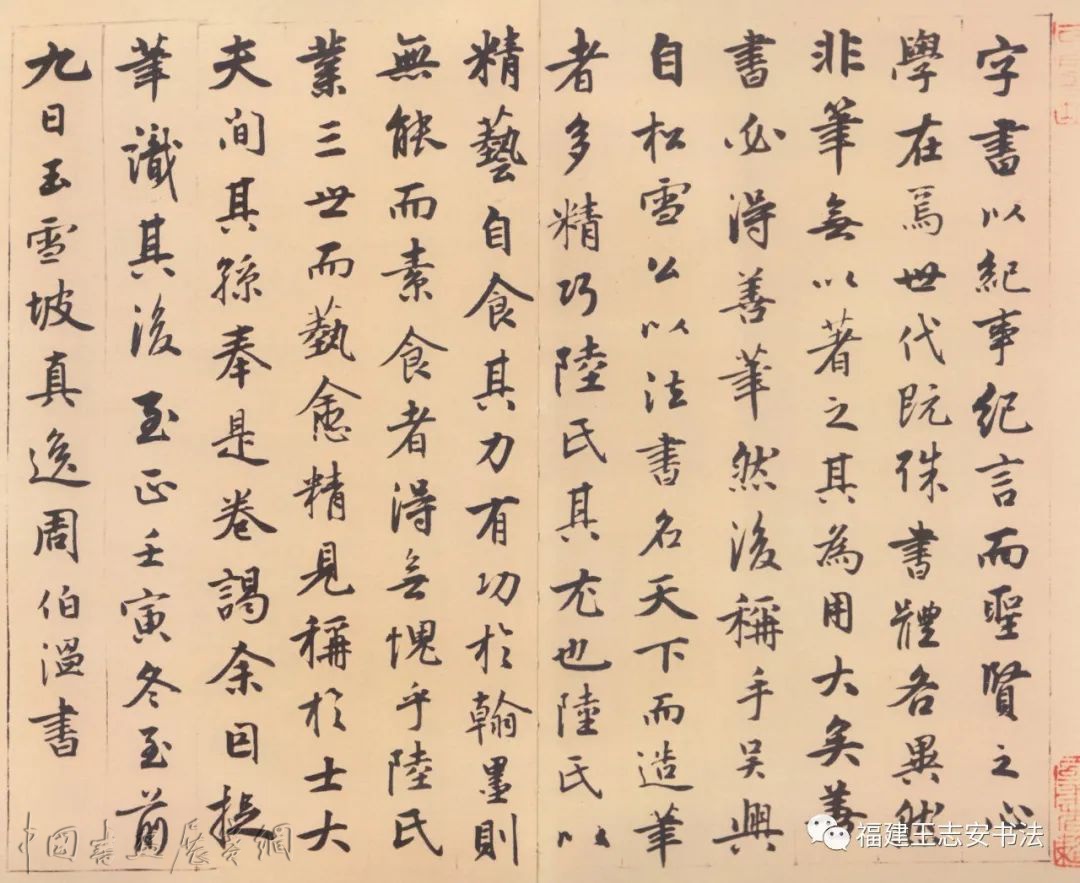 字書以紀事紀言而聖賢之心
學在焉世代既殊書體各異然
非筆無以著之其為用大矣善
書必得善筆然後稱手吳興
自松雪公以法書名天下而造筆
者多精巧陸氏其尤也陸氏以
精藝自食其力有功於翰墨則
無能而素食者得無愧乎陸氏
業三世而藝愈精見稱於士大
夫間其孫奉是卷謁余因捉
筆識其後至正壬寅冬至前
九日玉雪坡真逸周伯溫書
福建王志安书法